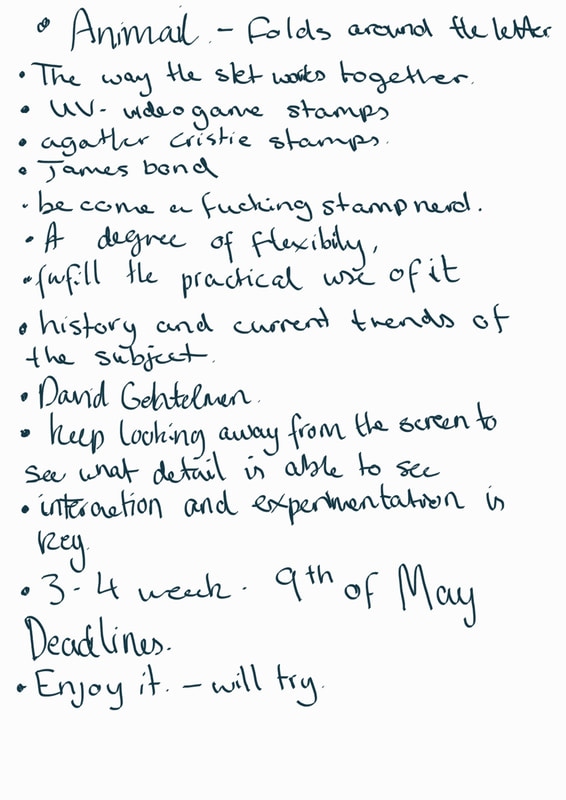 • Animail. - Folds around the letter.
• The way the set works together.
• UV- videogame stamps
• agather cristie stamps.
• James bond
• become a fucking stamp nerd.
• A degree of flexibily,
• fulfill the practical use of it
• history and current trends of
the subject.
• David Gentelmen.
• keep looking away from the screen to
see what detail is able to see
• interaction and experimentation is
key.
• 3-4 week. 9th of May
Deadlines.
• Enjoy it. - will try.